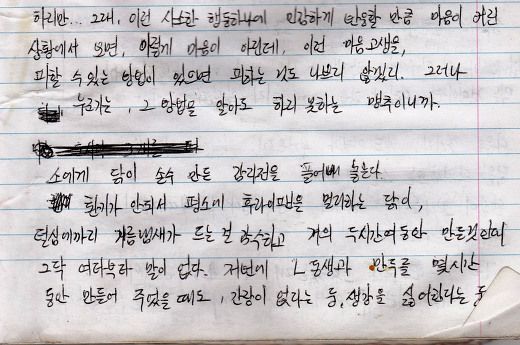 하지만... 그래, 이런 사소한 행동하나에 민감하게 반응할 만큼 마음이 여린
상황에서 보면, 이렇게 마음이 아린데, 이런 마음고생을,
피할 수 있는 방법이 있으면 피하는 것도 나쁘지 않겠지. 그러나
누군가는, 그 방법을 알아도 하지 못하는 맹추이니까.
소에게 닭이 손수 만든 감자전을 풀어내 놓는다.
환기가 안되서 평소에 후라이팬을 멀리하는 닭이,
털실에까지 기름냄새가 드는 걸 감수하고 거의 두시간여동안 만든것인데
그닥 여다북다 말이 없다. 저번에 L 동생과 만두를 몇시간
동안 만들어 주었을때도, 간장이 없다는 둥, 생강을 싫어한다는 둥